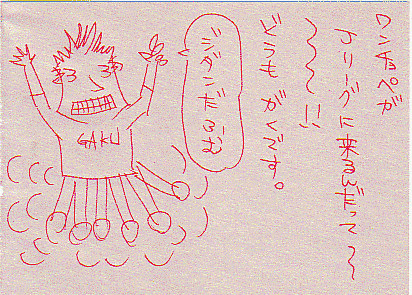 ワンチョペが
Jリーグに来るんだって〜
〜〜〜!!
どうも がくです。
ジダンだぁ゛む
GAKU